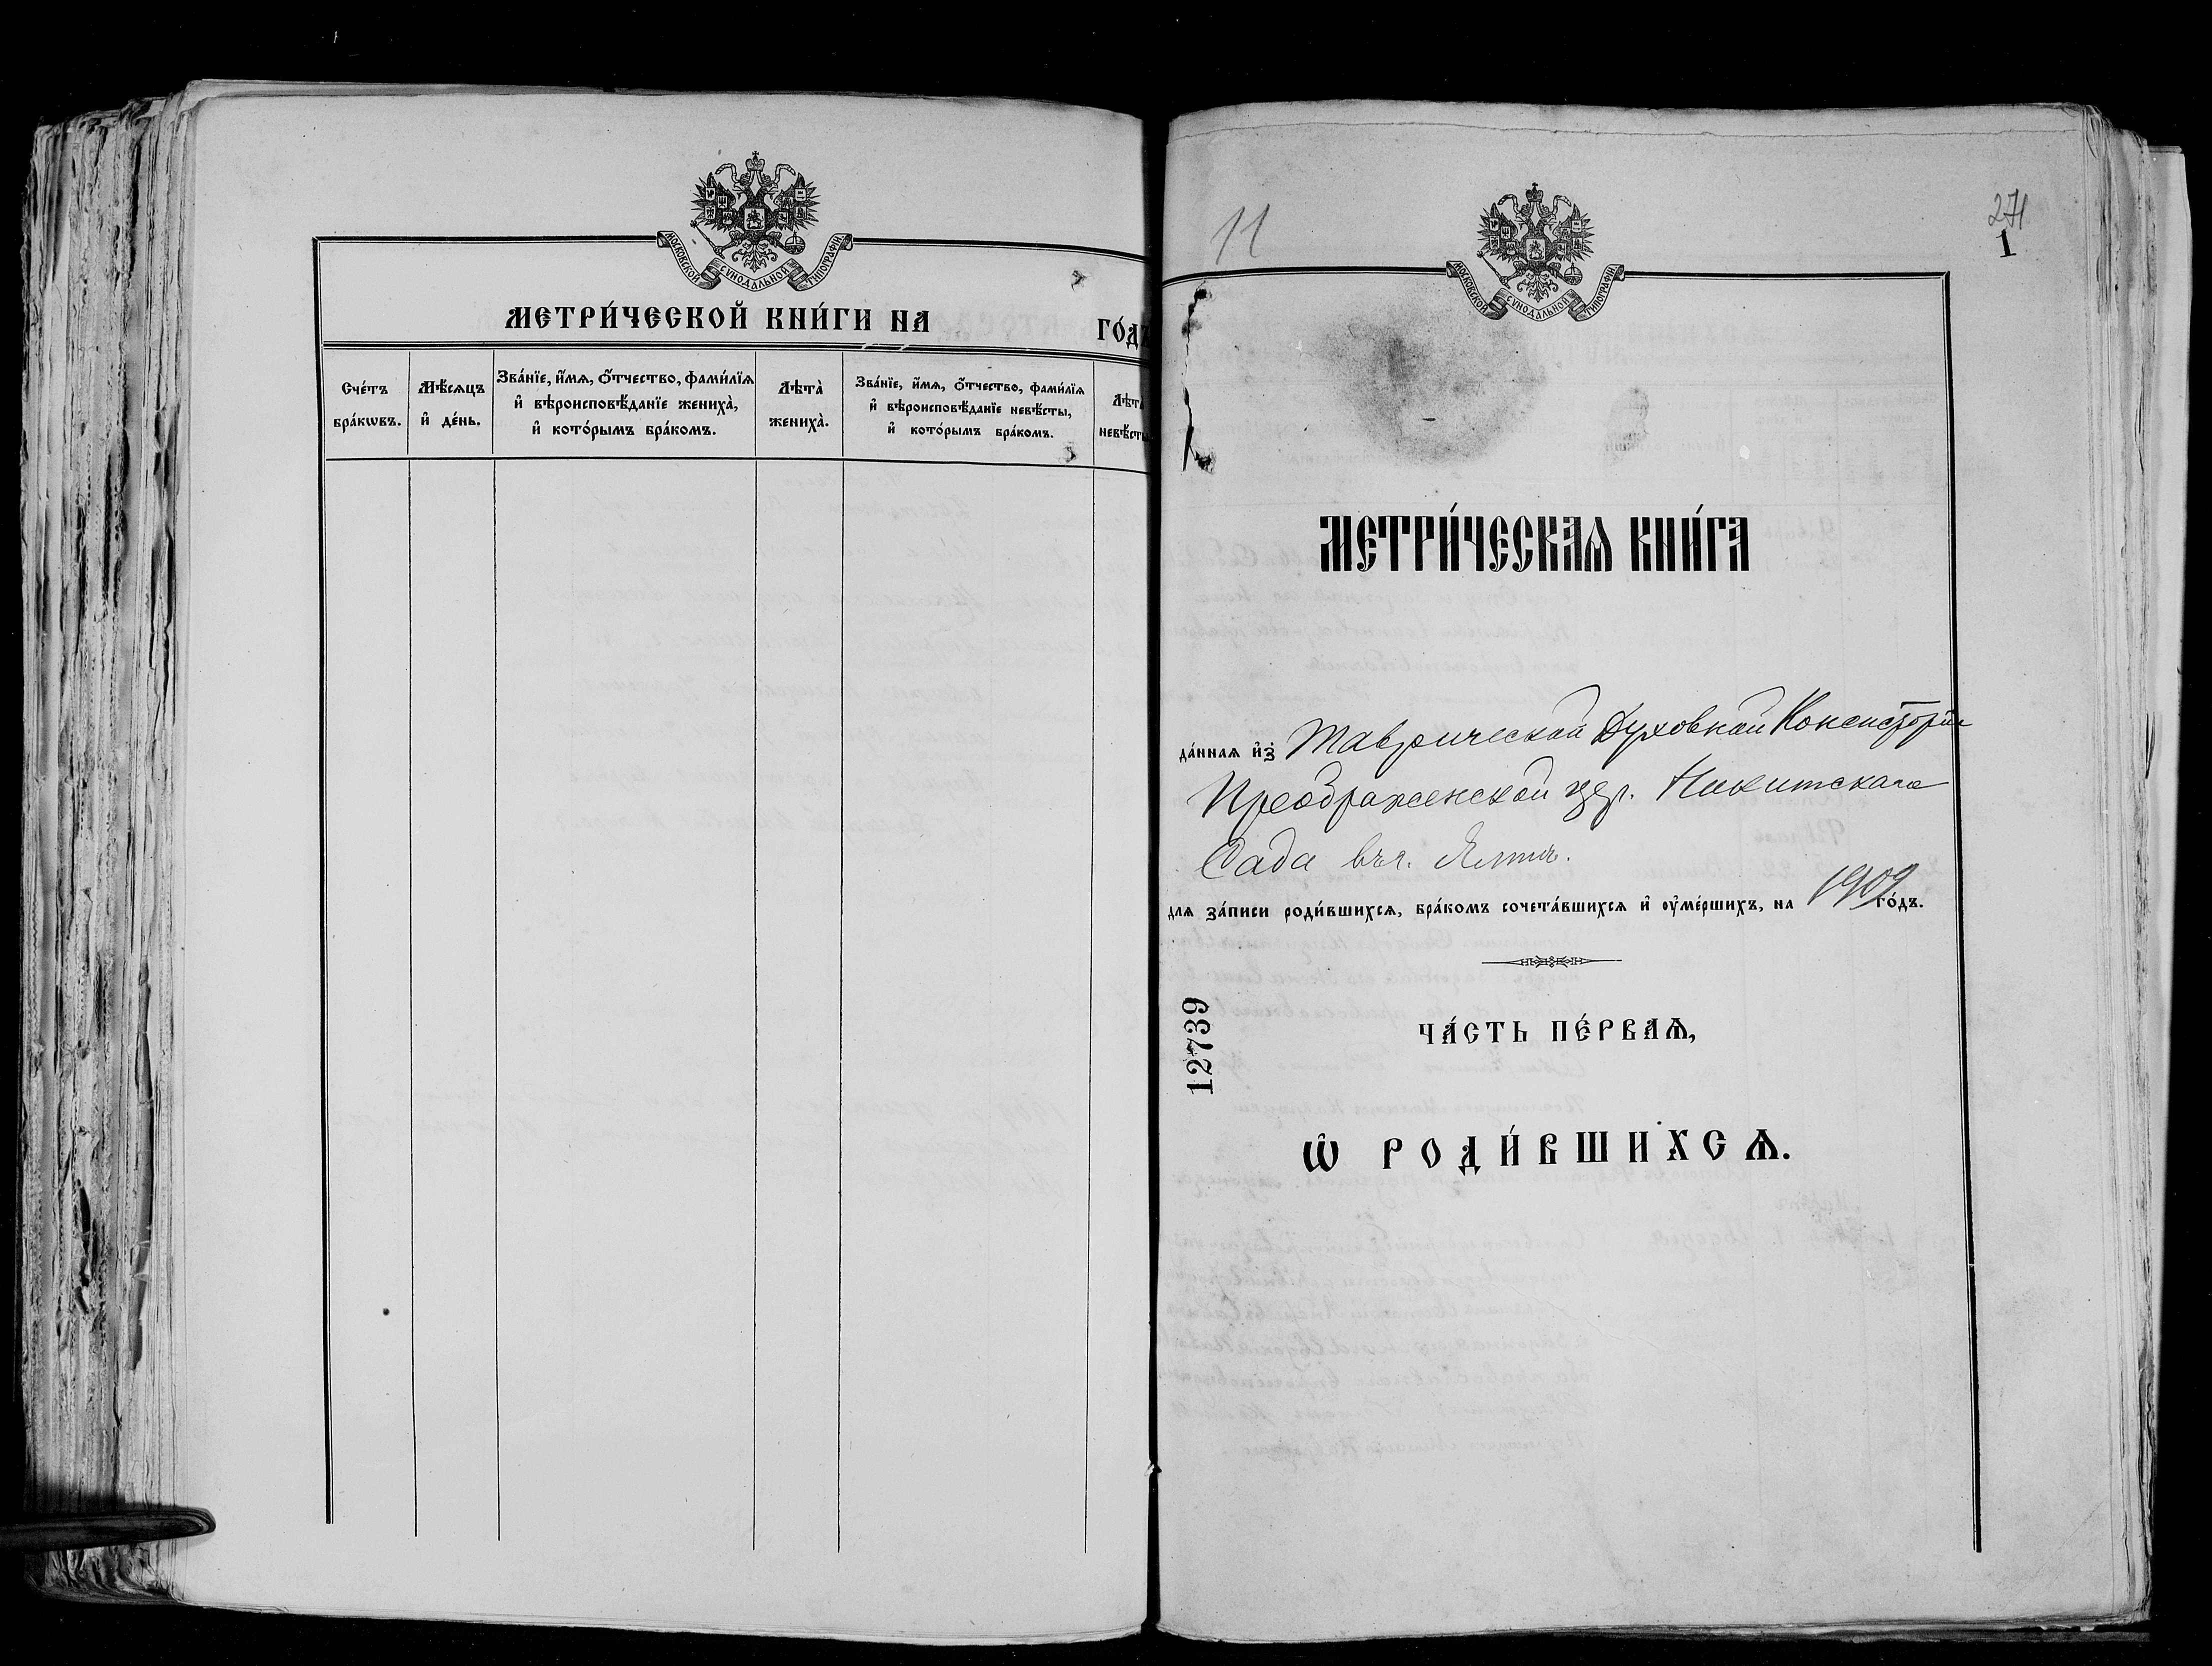 МОСКОВСКОЙ СѴНОДАЛЬНОЙ ТИПОГРАФІИ.
МЕТРИ́ЧЕСКОЙ КНИ́ГИ НА ГО́ДЪ
Сче́тъ бра́кѡвъ.
Мѣ́сяцъ и҆ де́нь.
Зва́нїе, и҆́мѧ, ѻ҆́тчество, фами́лїѧ
и҆ вѣроисповѣ́данїе жениха̀,
и҆ кото́рымъ бра́комъ.
Лѣта̀ жениха̀.
Зва́нїе, и҆́мѧ, ѻ҆́тчество, фами́лїѧ
и҆ вѣроисповѣ́данїе невѣ́сты,
и҆ кото́рымъ бра́комъ.
Лѣта̀ невѣ́сты
11
271
1
МОСКОВСКОЙ СѴНОДАЛЬНОЙ ТИПОГРАФІИ.
МЕТРИ́ЧЕСКАѦ КНИ́ГА
да́ннаѧ и҆з̾ Таврической Духовной Консисторіи
Преображенской цер. Никитскаго
Сада въ г. Ялтѣ.
для за́писи роди́вшихсѧ, бра́комъ сочета́вшихсѧ и҆ ᲂу҆ме́ршихъ, на 1909 го́дъ.
12739
ЧА́СТЬ ПЕ́РВАѦ,
Ѽ РОДИ́ВШИХСѦ.